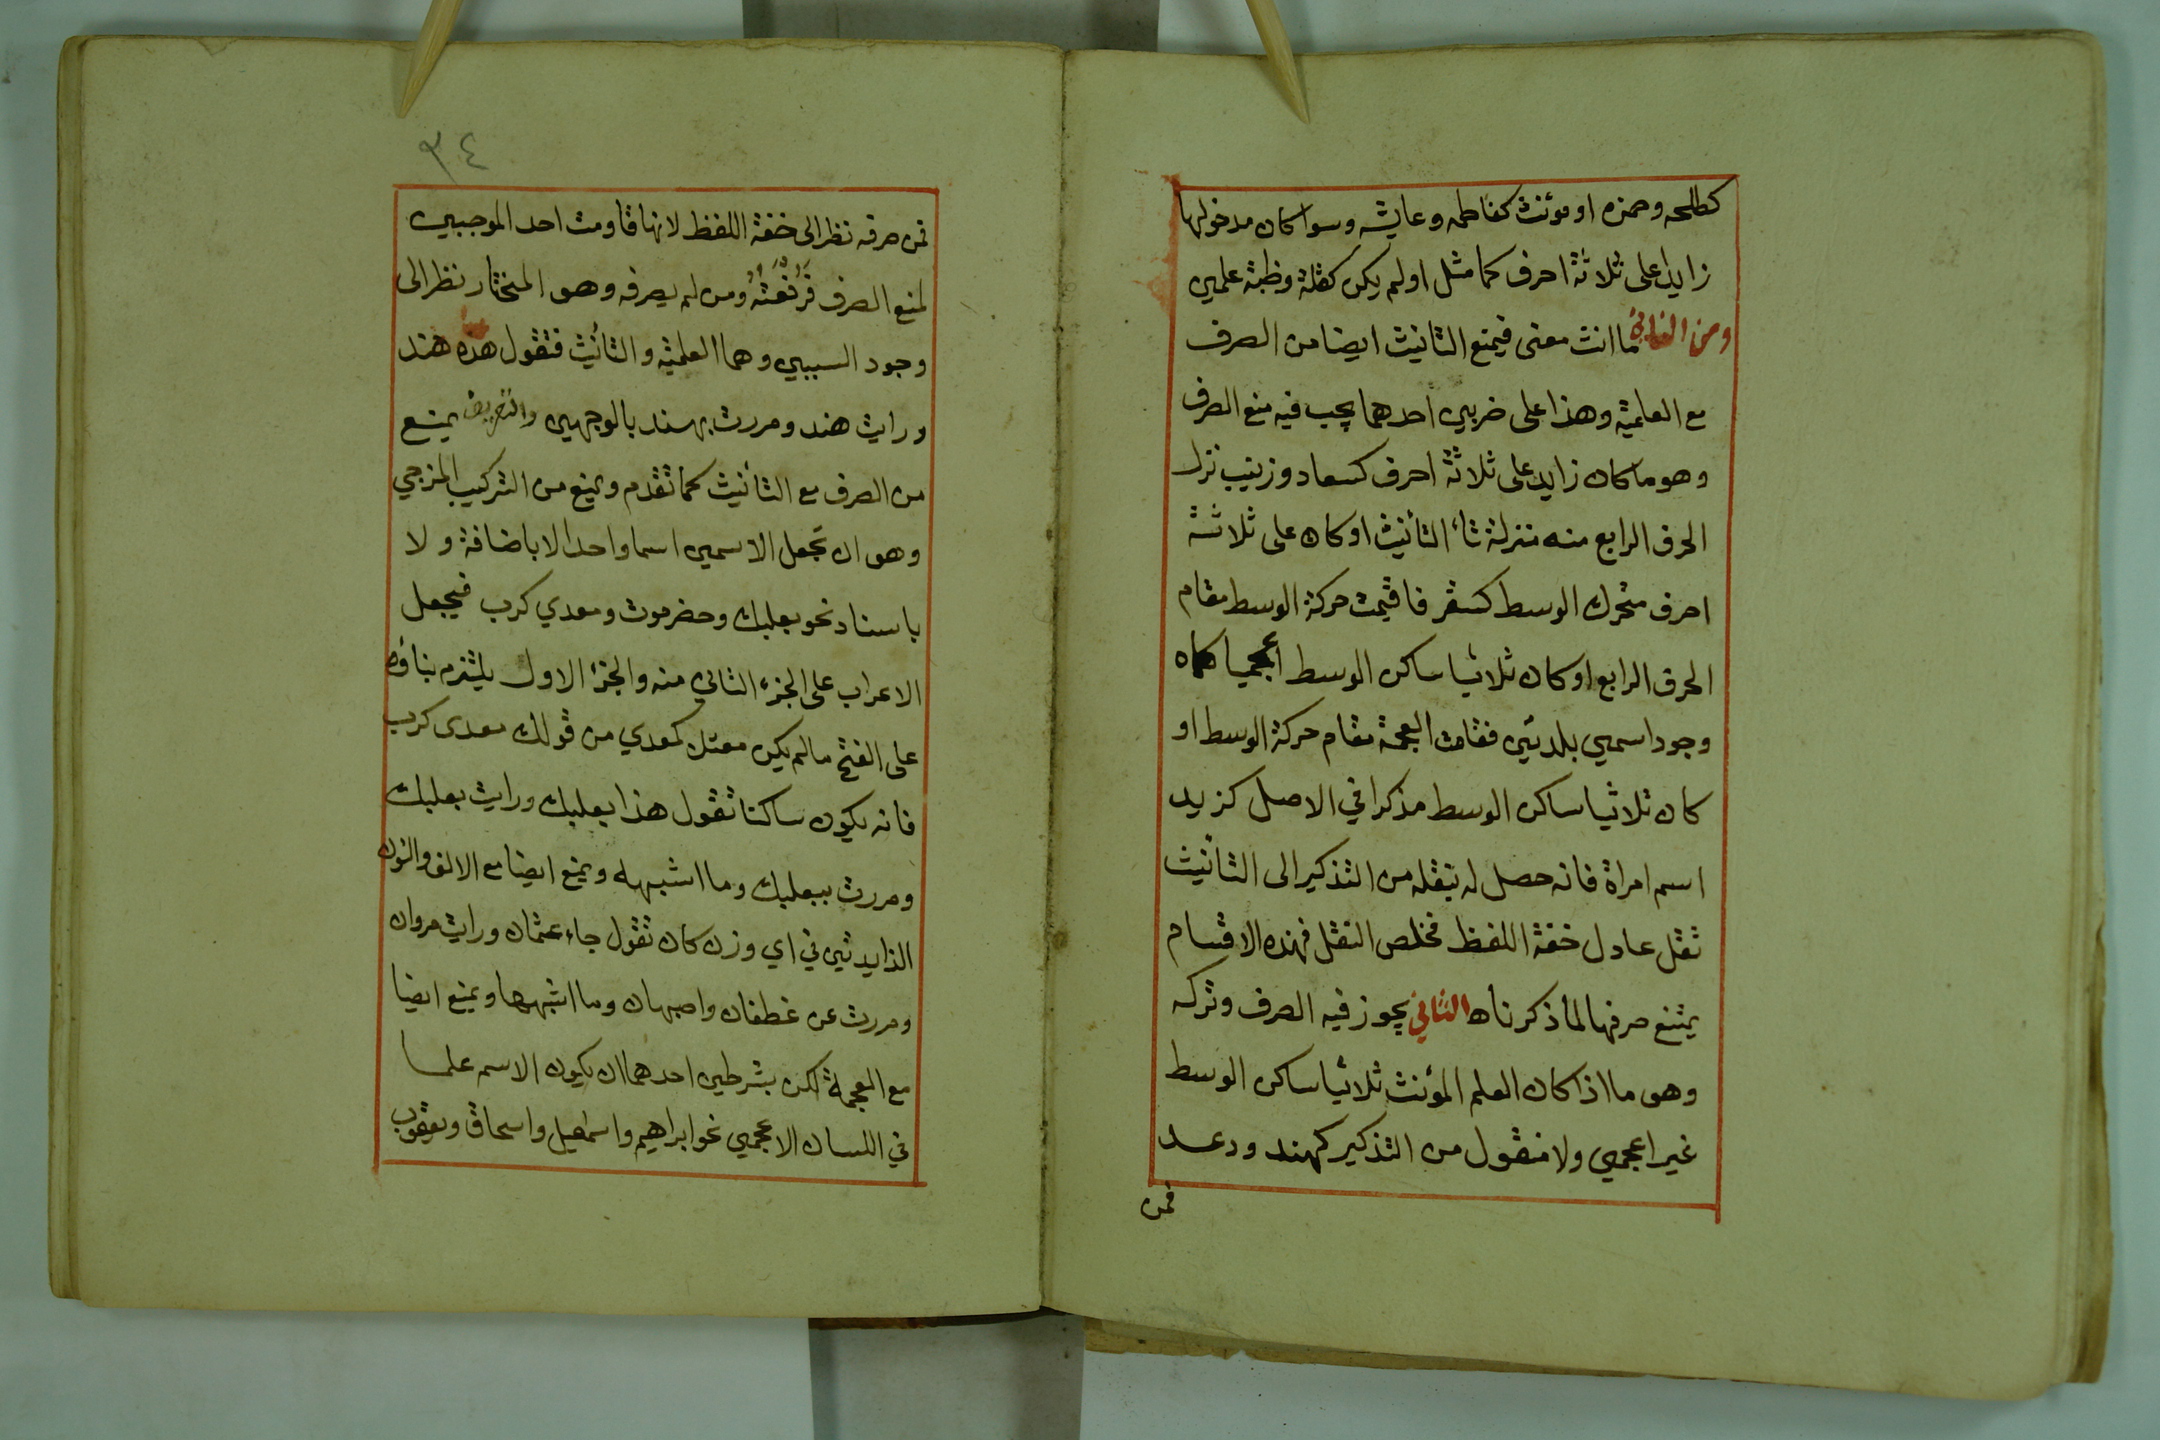 كطلحه وحمزه او مونث كفاطمه وعايشه وسوا كان مدخولها
زايدا على ثلاثة احرف كما مثل او لم يكن كقلة وظبة علمين
ومن الثاني ما انث معنى فيمنع التانيث ايضا من الصرف
مع العلمية وهذا على ضربين احدهما يجب فيه منع الصرف
وهو ما كان زايد على ثلاثة احرف كسعاد وزينب نزل
الحرف الرابع منه منزلة تاء التأنيث او كان على ثلاثة
احرف متحرك الوسط كسقر فاقيمت حركة الوسط مقام
الحرف الرابع او كان ثلاثيا ساكن الوسط اعجميا كماه
وجور اسمين بلدتين فقامت العجمة مقام حركة الوسط او
كان ثلاثيا ساكن الوسط مذكرا في الاصل كزيد
اسم امراة فانه حصل له بنقله من التذكير الى التأنيث
ثقل عادل خفة اللفظ فخلص الثقل فهذه الاقسام
يمتنع صرفها لما ذكرناه الثاني يجوز فيه الصرف وتركه
وهو ما اذا كان العلم المؤنث ثلاثيا ساكن الوسط
غير اعجمي ولا منقول من التذكير كهند ودعد
فمن
٣٤
فمن صرفه نظر الى خفة اللفظ لانها قاومت احد الموجبين
لمنع الصرف فرفعته ومن لم يصرفه وهو المختار نظر الى
وجود السببين وهما العلميه والتأنيث فتقول هذه هند
ورايت هند ومررت بهند بالوجهين والتعريف يمنع
من الصرف مع التأنيث كما تقدم ويمنع من التركيب المزجي
وهو ان تجعل الاسمين اسما واحدا لا باضافة ولا
باسناد نحو بعلبك وحضرموت ومعدي كرب فيجعل
الاعراب على الجزء الثاني منه والجزء الاول يلتزم بناؤه
على الفتح ما لم يكن معتل كمعدي من قولك معدى كرب
فانه يكون ساكنا تقول هذا بعلبك ورايت بعلبك
ومررت ببعلبك وما اشبهه ويمنع ايضا مع الالف والنون
الزايدتين في اي وزن كان تقول جاء عثمان ورايت مروان
ومررت عن غطفان واصبهان وما اشبهها ويمنع ايضا
مع العجمة لكن بشرطين احدهما ان يكون الاسم علما
في اللسان الاعجمي نحو ابراهيم واسمعيل واسحاق ويعقوب